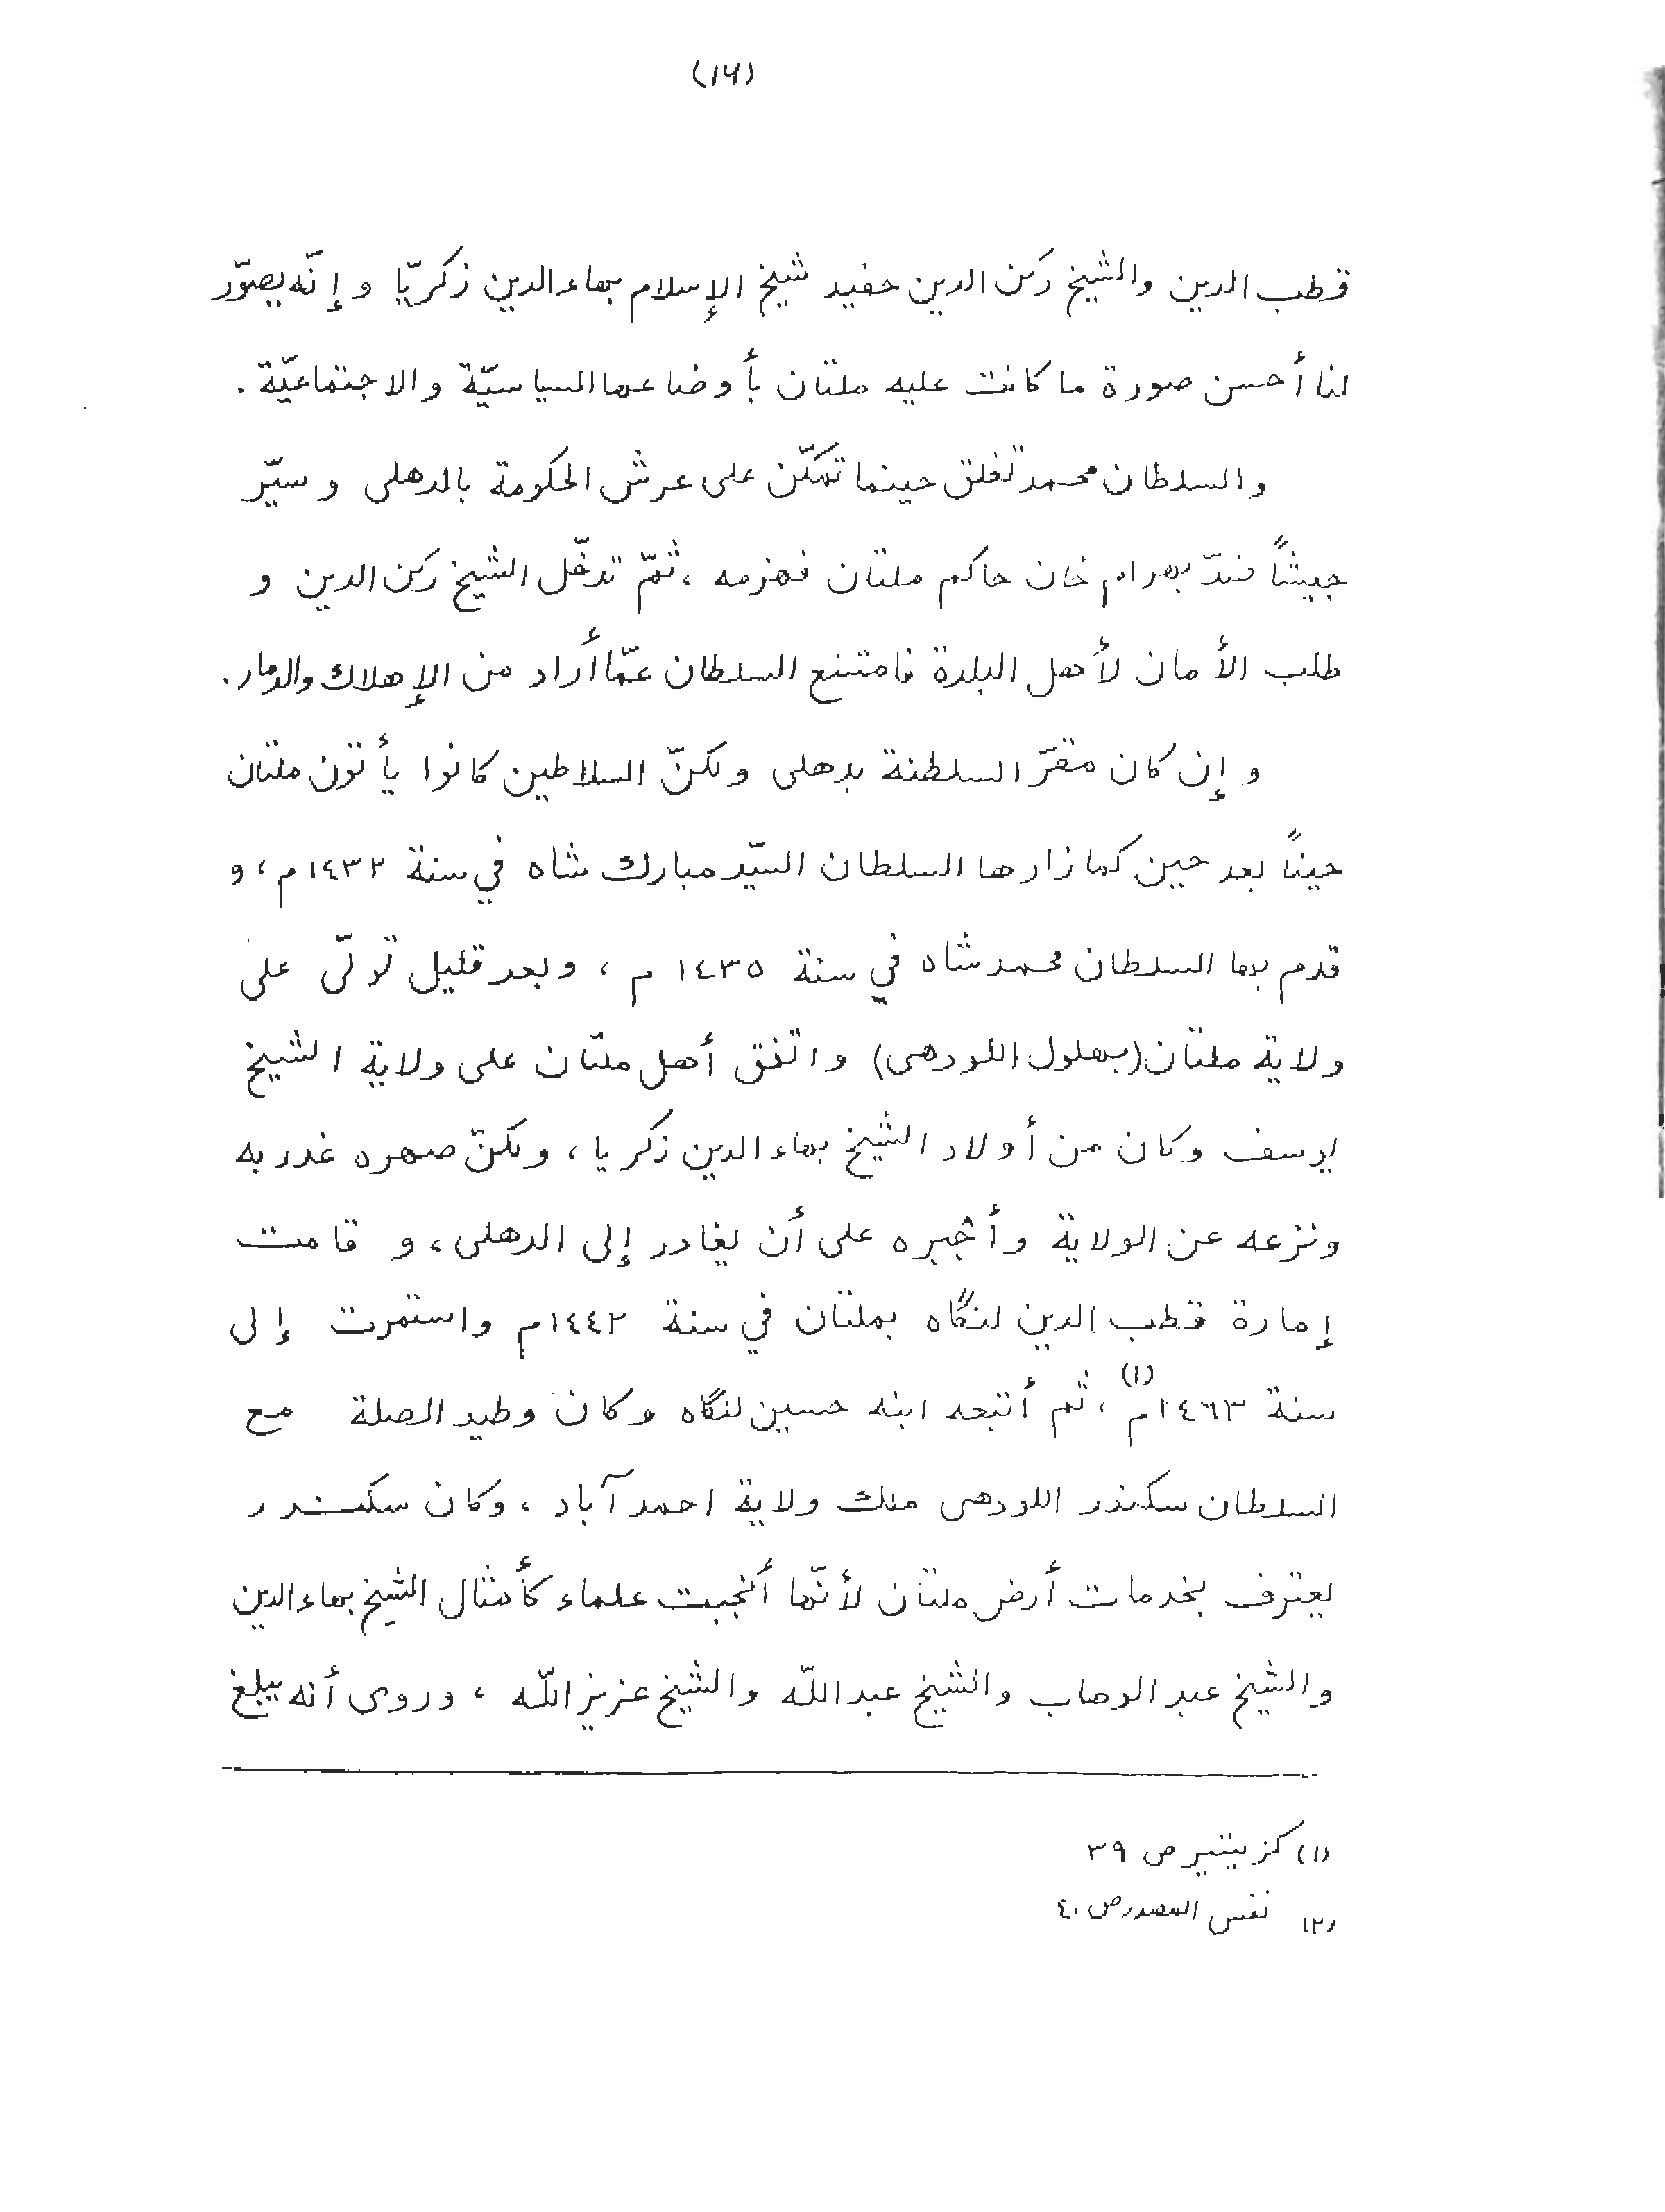 (۱۶)
قطب الدين والشيخ ركن الدين حفيد شيخ الإسلام بهاء الدين زكريّا و إنّه يصوّر
لنا أحسن صورة ما كانت عليه ملتان بأوضاعها السياسيّة والاجتماعيّة .
والسلطان محمد تغلق حينما تمكّن على عرش الحكومة بالدهلى و سيّر
جيشاً ضدّ بهرام خان حاكم ملتان فهزمه ، ثمّ تدخّل الشيخ ركن الدين و
طلب الأمان لأهل البلدة فامتنع السلطان عمّا أراد من الإهلاك والدمار.
و إن كان مقرّ السلطنة بدهلى ولكنّ السلاطين كانوا يأتون ملتان
حيناً بعد حين كما زارها السلطان السيّد مبارك شاه في سنة ١٤٣٢م ، و
قدم بها السلطان محمد شاه في سنة ١٤٣٥ م ، وبعد قليل تولّى على
ولاية ملتان (بهلول اللودهى) واتفق أهل ملتان على ولاية الشيخ
يوسف وكان من أولاد الشيخ بهاء الدين زكريا ، ولكنّ صهره غدر به
ونزعه عن الولاية وأجبره على أن يغادر إلى الدهلى ، و قامت
إمارة قطب الدين لنگاه بملتان في سنة ١٤٤٢م واستمرت إلى
سنة ١٤٦٣م (١) ، ثم أتبعه ابنه حسين لنگاه وكان وطيد الصلة مع
السلطان سكندر اللودهى ملك ولاية احمد آباد ، وكان سكندر
يعترف بخدمات أرض ملتان لأنّها أنجبت علماء كأمثال الشيخ بهاء الدين
والشيخ عبد الوهاب والشيخ عبد اللّه والشيخ عزيز اللّه ، وروى أنه يبلغ
(١) گزيتير ص ٣٩
(٢) نفس المصدر ص ٤٠